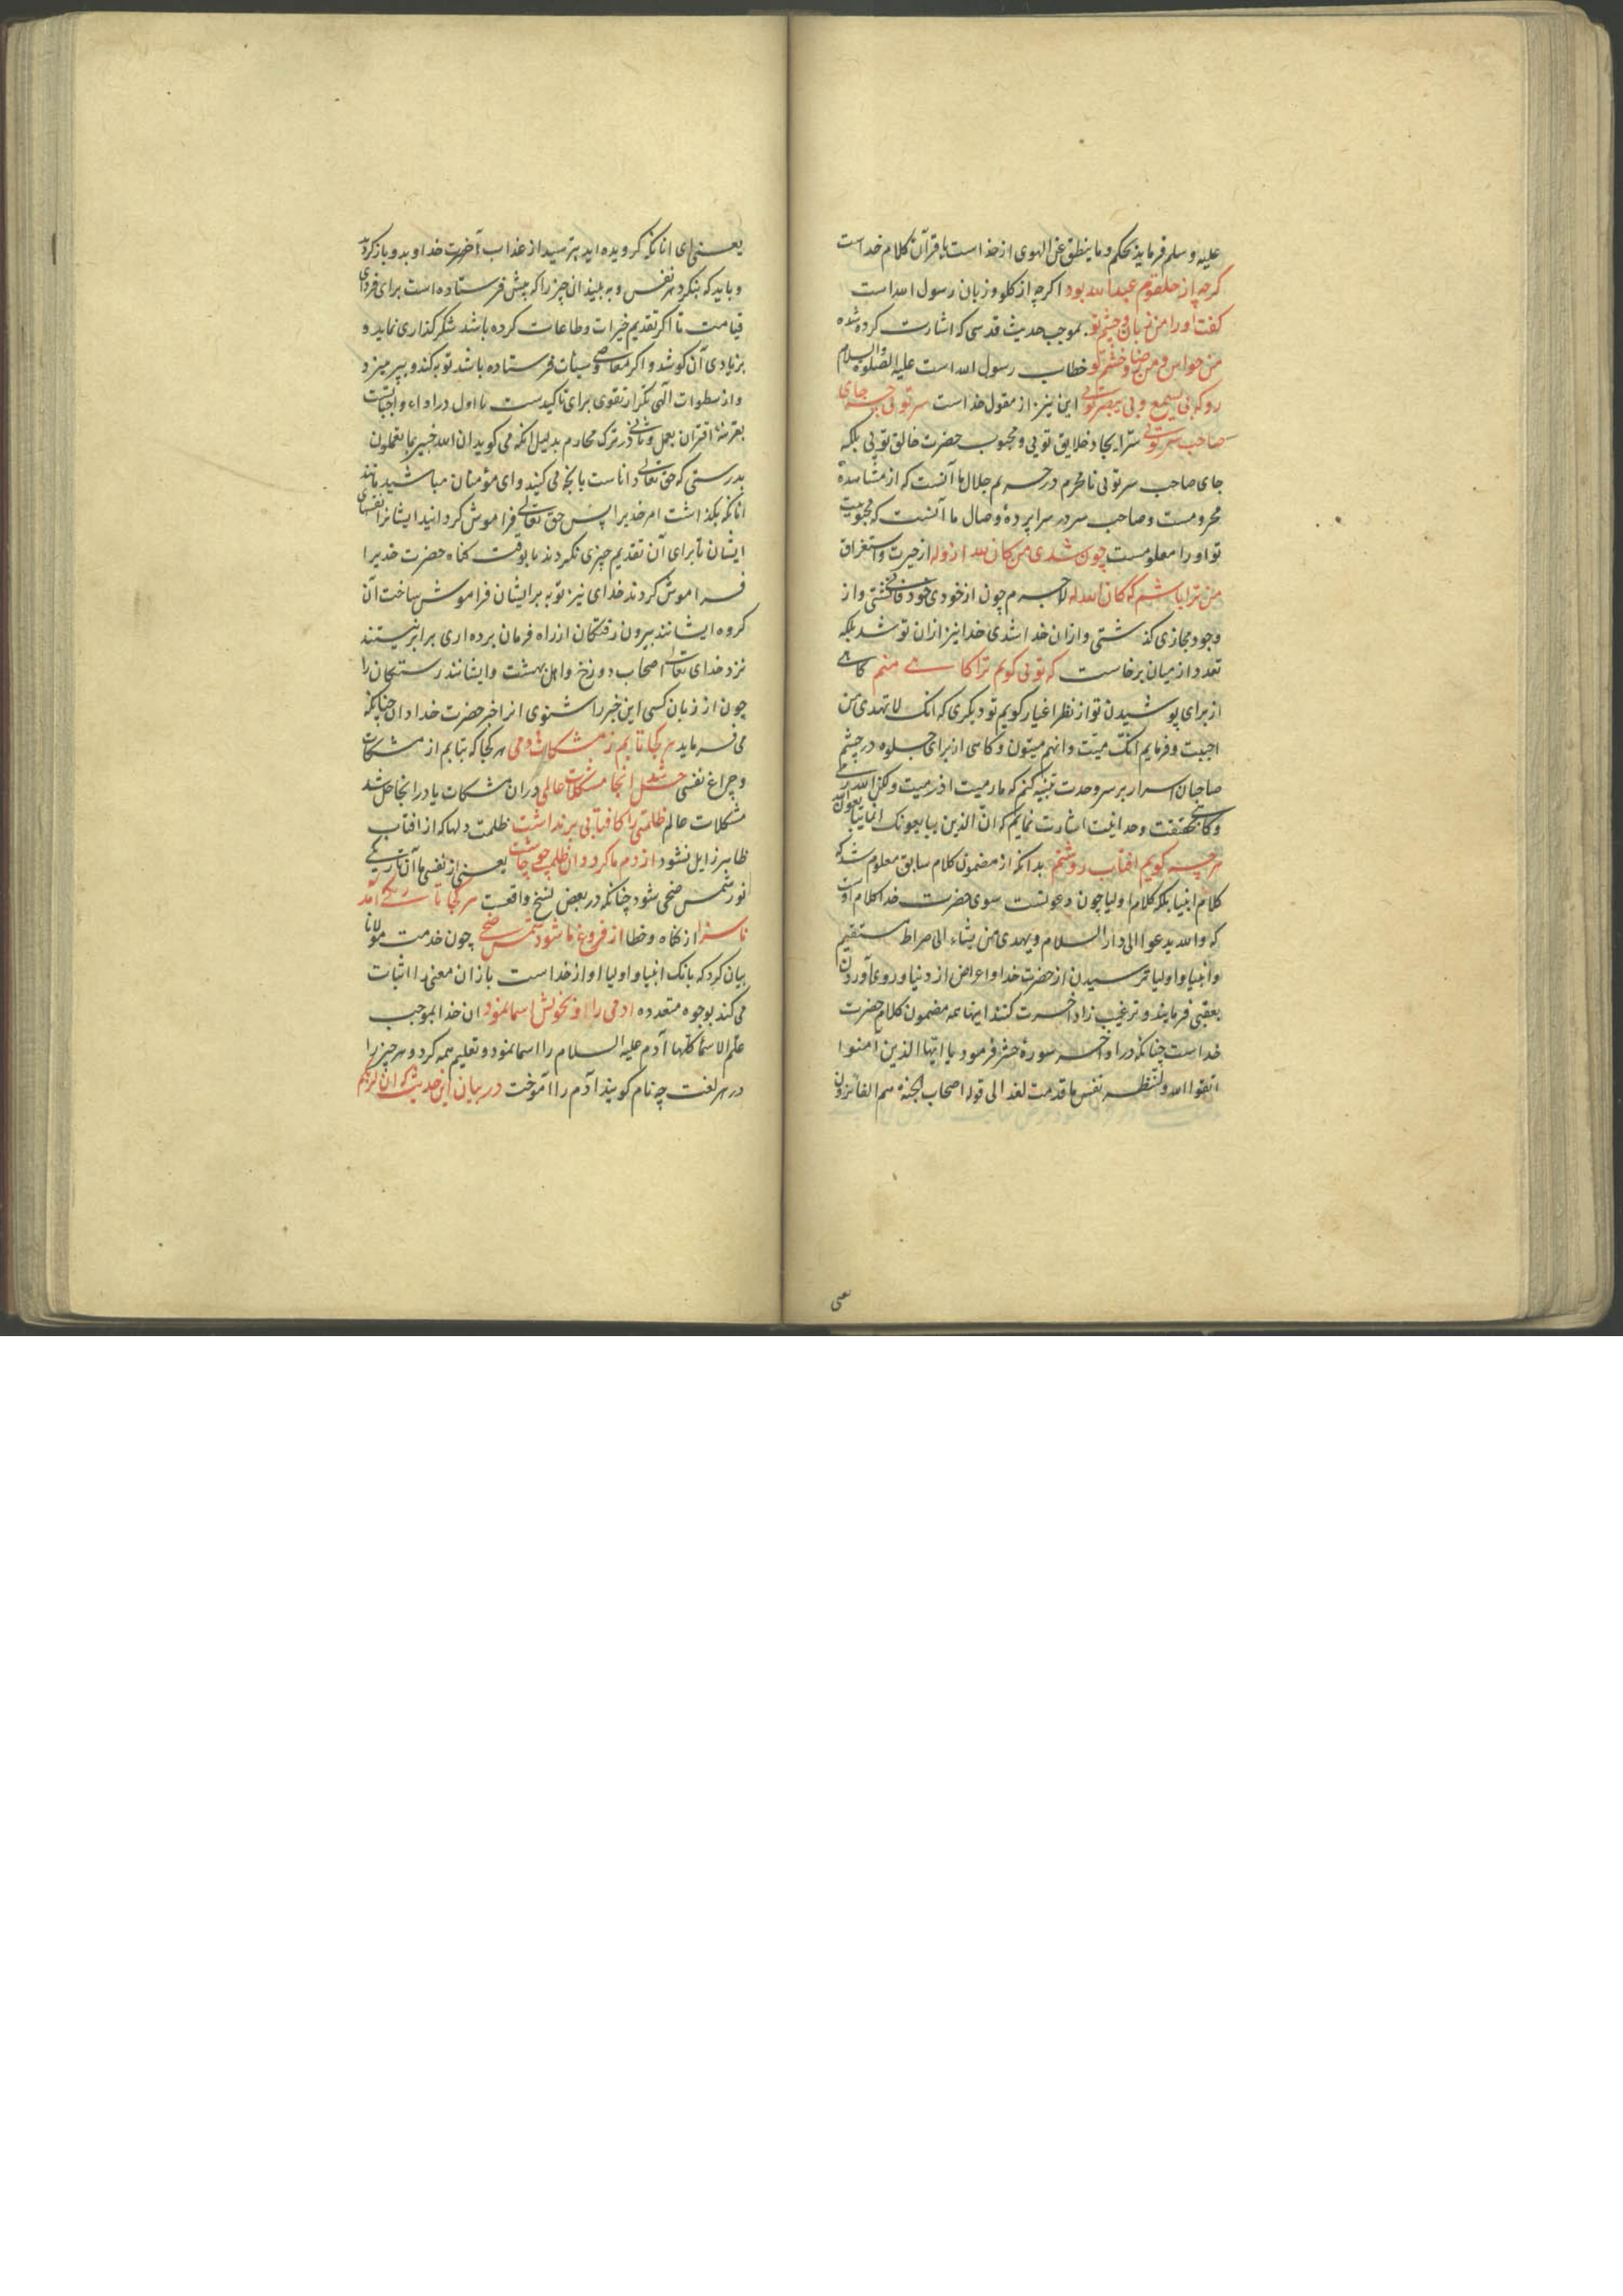 علیه و سلم فرماید بحکم و ما ینطق عن الهوی از خداست یا قرآن کلام خداست
کرچه از حلقوم عبدالله بود اکرچه از کلو و زبان رسول الله است
کفت او را من زبان و چشم تو بموجب حدیث قدسی که اشارت کرده شده
من حواس و من رضا و خشم تو خطاب رسول الله است علیه الصلوة والسلام
رو که بی یسمع و بی یبصر تویی این نیز از مقول خداست سر تویی چه جای
صاحب سر تویی سر ایجاد خلایق تویی و محبوب حضرت خالق تویی بلکه
جای صاحب سر تویی نامحرم در حریم جلال ما آنست که از مشاهده
محرومست و صاحب سر در سراپردۀ وصال ما آنست که محبوبیت
تو او را معلومست چون شدی من کان لله از وله از حیرت و استغراق
من ترا باشم که کان الله له لاجرم چون از خودی خود فانی کشتی و از
وجود مجازی کذشتی و ازان خدا شدی خدا نیز ازان تو شد بلکه
تعدد از میان برخاست که تویی کویم ترا کاهی منم کاهی
از برای پوشیدن تو از نظر اغیار کویم تو دیکری که انک لا تهدی من
احببت و فرمایم انک میت و انهم میتون و کاهی از برای جلوه در چشم
صاحبان اسرار بر سر وحدت تنبیه کنم که ما رمیت اذ رمیت ولکن الله رمی
و کاهی بحقیقت وحدانیت اشارت نمایم که ان الذین یبایعونک انما یبایعون الله
هرچه کویم افتاب روشنم بدانکه از مضمون کلام سابق معلوم شد که
کلام انبیا بلکه کلام اولیا چون دعوتست سوی حضرت خدا کلام اوست
که والله یدعوا الی دار السلام و یهدی من یشاء الی صراط مستقیم
و انبیا و اولیا ترسیدن از حضرت خدا و اعراض از دنیا و روی آوردن
بعقبی فرمایند و ترغیب زاد آخرت کنند اینها همه مضمون کلام حضرت
خداست چنانکه در اواخر سورۀ حشر فرمود یا ایها الذین آمنوا
اتقوا الله ولتنظر نفس ما قدمت لغد الی قوله اصحاب الجنة هم الفائزون
یعنی
یعنی ای انانکه کرویده اید بترسید از عذاب آخرت خداوند و باز کردید
و باید که بنکرد هر نفس و به بیند ان چیز را که پیش فرستاده است برای فردای
قیامت تا اکر تقدیم خیرات و طاعات کرده باشد شکر کذاری نماید و
بزیادی آن کوشد و اکر معاصی و سیئات فرستاده باشد توبه کند و بپرهیزد
و از سطوات الهی تکرار تقوی برای تاکیدست یا اول در اداء واجباتست
بقرینۀ اقتران بعمل و ثانی در ترک محارم بدلیل انکه می کوید ان الله خبیر بما تعملون
بدرستی که حق تعالی داناست بانچه می کنید و ای مؤمنان مباشید مانند
انانکه بکذاشت امر خدیرا پس حق تعالی فراموش کردانید ایشانرا نفسهای
ایشان تا برای آن تقدیم چیزی نکردند یا بوقت کناه حضرت خدیرا
فراموش کردند خدای نیز توبه بر ایشان فراموش ساخت آن
کروه ایشانند بیرون رفتکان از راه فرمان برده اری برابر نیستند
نزد خدای تعالی اصحاب دوزخ و اهل بهشت و ایشانند رستکان را
چون از زبان کسی این خبر را شنوی انرا خبر حضرت خدا دان چنانکه
می فرماید هر کجا تابم ز مشکات دمی هر کجا که بتابم از مشکات
و چراغ نفسی حل شد انجا مشکلات عالمی دران مشکات یا در انجا حل شد
مشکلات عالم ظلمتی را کافتابی برنداشت ظلمت دلها که از افتاب
ظاهر زایل نشود از دم ما کردد ان ظلمت چو چاشت یعنی از نفس ما آن تاریکی
نور شمس ضحی شود چنانکه در بعض نسخ واقعست هر کجا تاریکی آمد
ناسزا از کناه و خطا از فروغ ما شود شمس ضحی چون خدمت مولانا
بیان کرد که بانک انبیا و اولیا اواز خداست باز ان معنی را اثبات
می کند بوجوه متعدده ادمی را او بخویش اسما نمود ان خدا بموجب
علم الاسما کلها آدم علیه السلام را اسما نمود و تعلیم همه کرد و هر چیز را
در هر لغت چه نام کویند آدم را آموخت در بیان این حدیث که ان لربکم